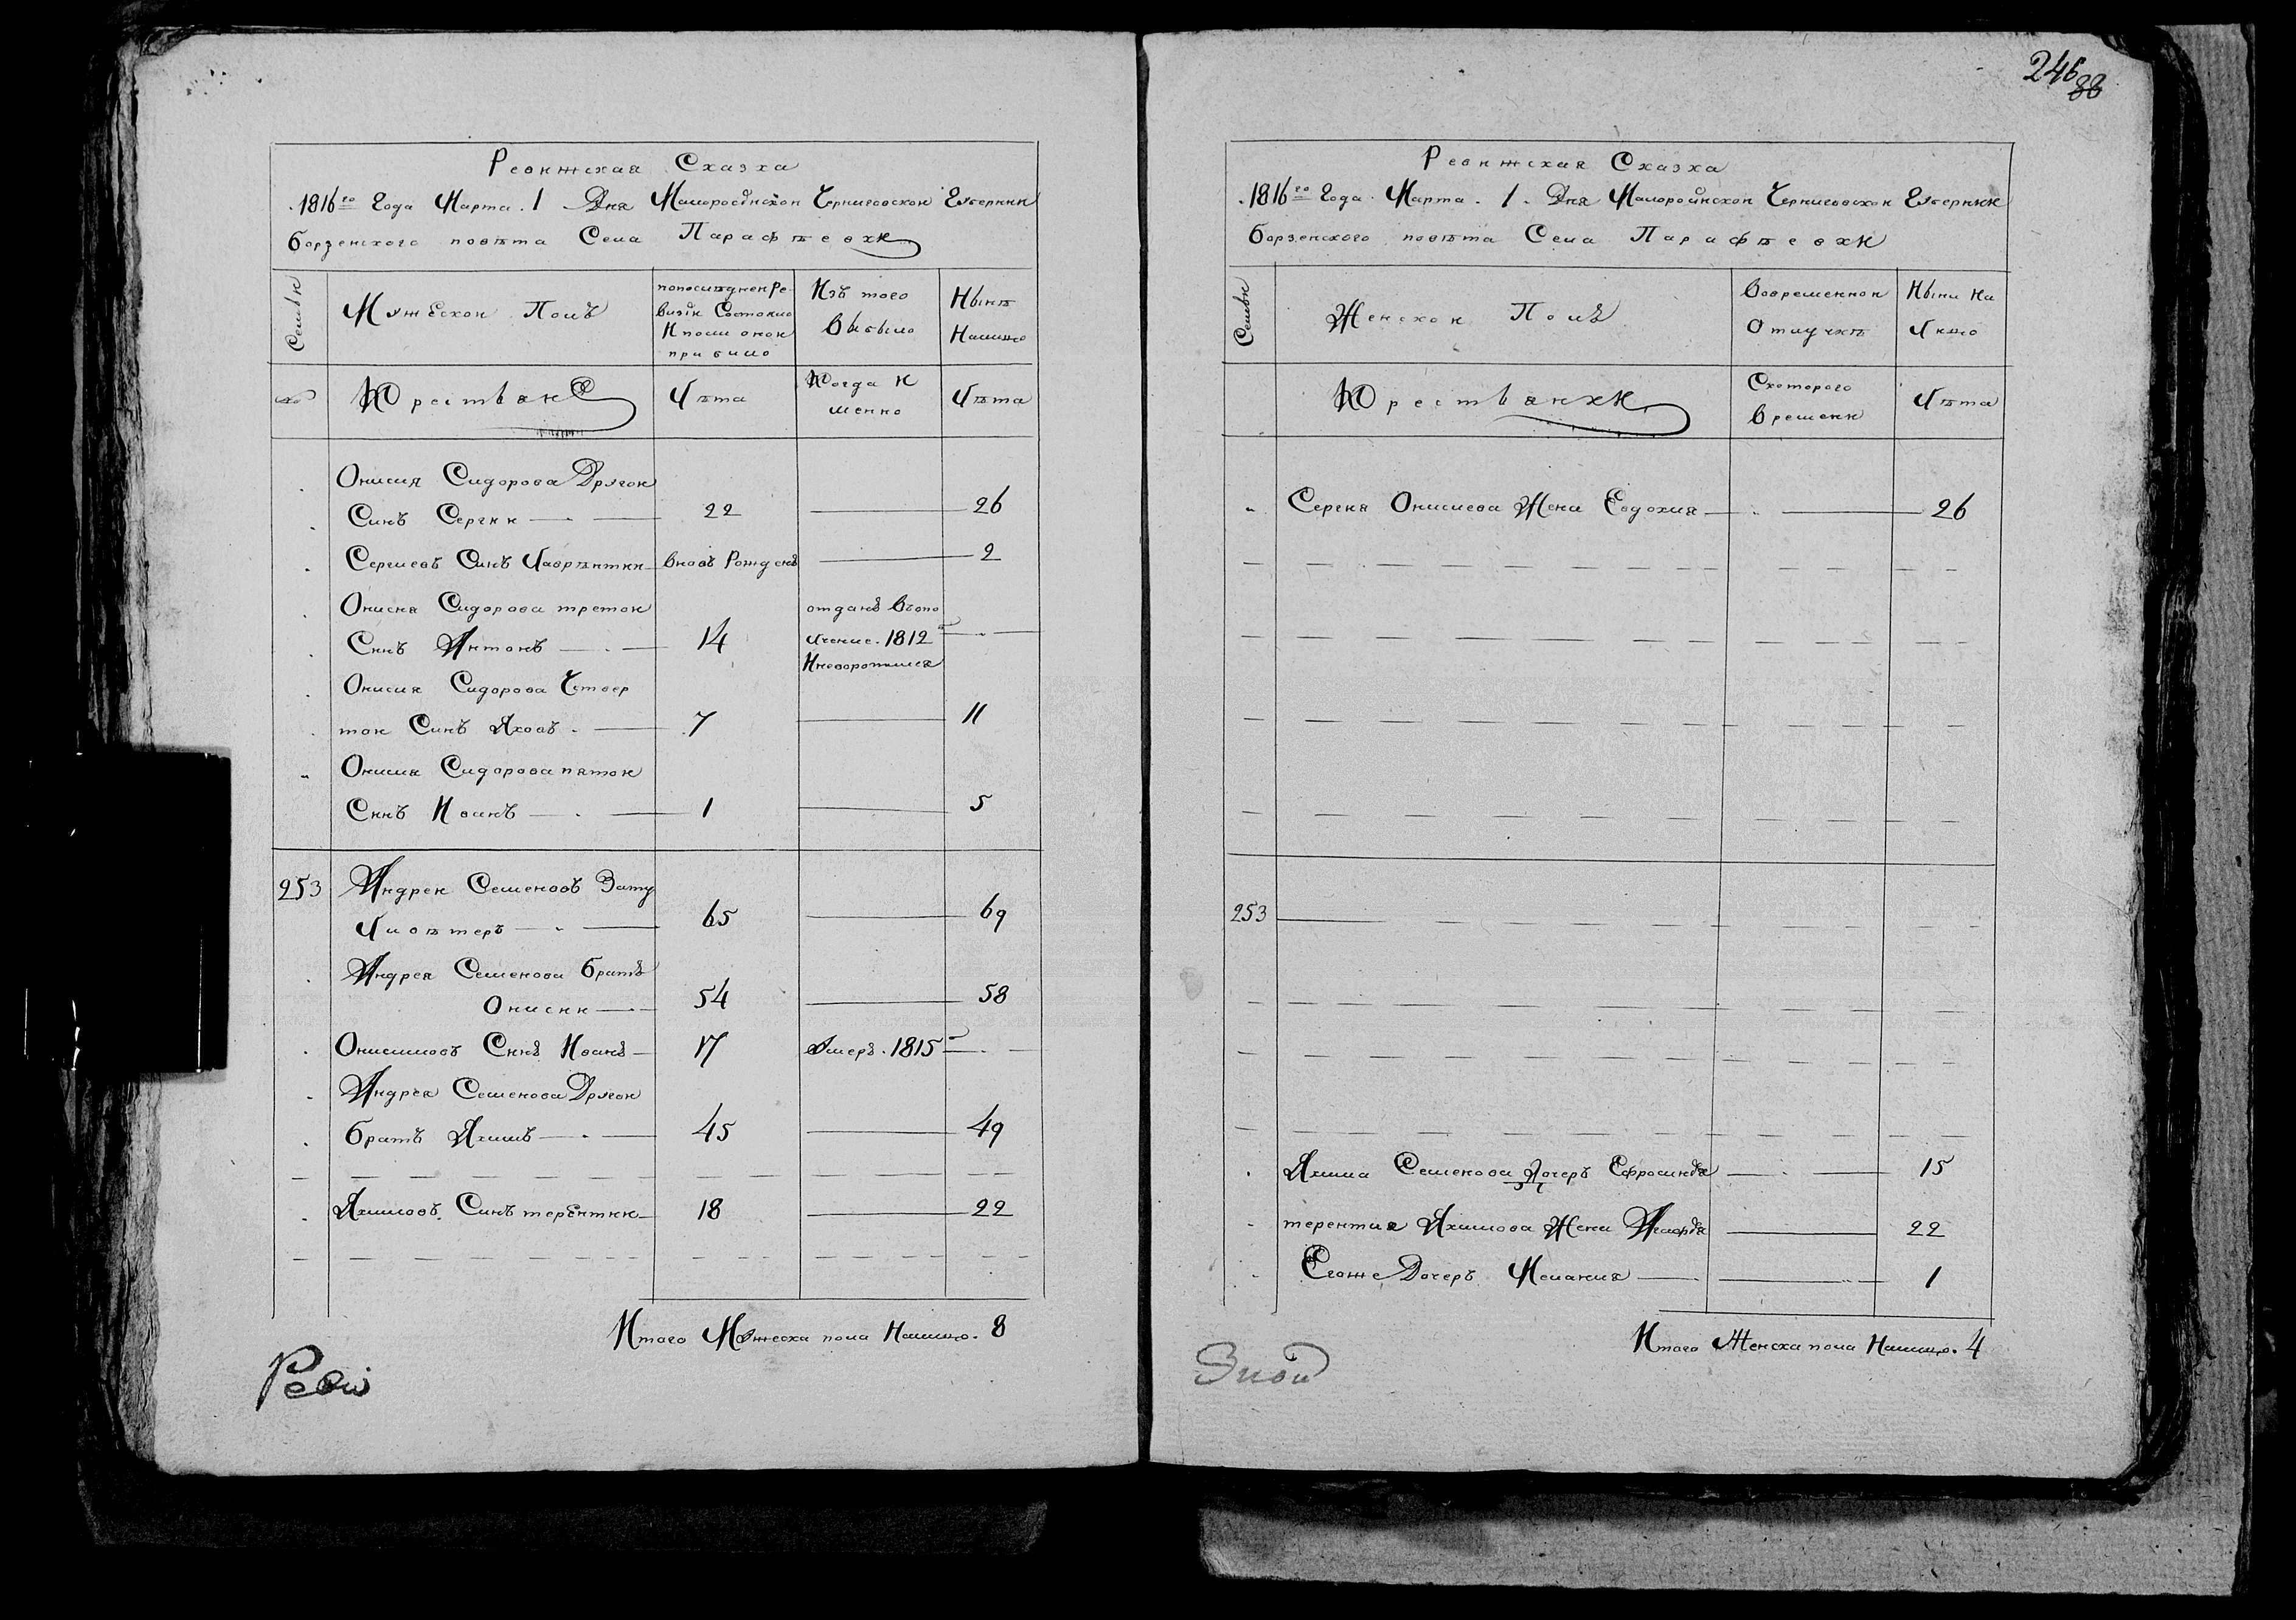 Ревижская Сказка
1816го Года Марта. 1 Дня Малоросийской Черниговской Губернии
борзенского повѣта Села Парафѣевки
Семьи
Мужеской Полъ
попослѣдней Ре-
визіи Состояло
И после оной
прибило
Изъ того
Выбыло
Нынѣ
Налицо
№
Крестьяне
Лѣта
Когда И
менно
Лѣта
Онисия Сидорова Другой
Синъ Сергий 22 26
Сергиевъ Синъ Лаврѣнтий вновъ Рожденъ 2
Онисия Сидорова третой
Синъ Антонъ 14
отданъ Вопо
лчение. 1812
Иневоротился
Онисия Сидорова Четвер
той Синъ Яковъ 7 11
Онисия Сидорова пятой
Синъ Иванъ 1 5
253 Андрей Семеновъ Зату
Ливѣтеръ 65 69
Андрея Семенова братъ
Онисий 54 58
Онисимовъ Синъ Иванъ 17 Умеръ. 1815
Андрея Семенова Другой
братъ Якимъ 45 49
Якимовъ Синъ терентий 18 22
Итого Мужеска пола Налицо. 8
Реви
246
88
Ревижская Сказка
1816го Года Марта. 1. Дня Малоросийской Черниговской Губернии
борзенского повѣта Села Парафѣевки
Семьи
Женской Полъ
Вовременной
Отлучкѣ
Ныни На
Лицо
Крестьянки
Скоторого
Времени
Лѣта
Сергия Онисиева Жена Евдокия 26
253
Якима Семенова Дочеръ Ефросиндя 15
терентия Якимова Жена 22
Егоже Дочеръ Мелания 1
Итого Женска пола Налицо. 4